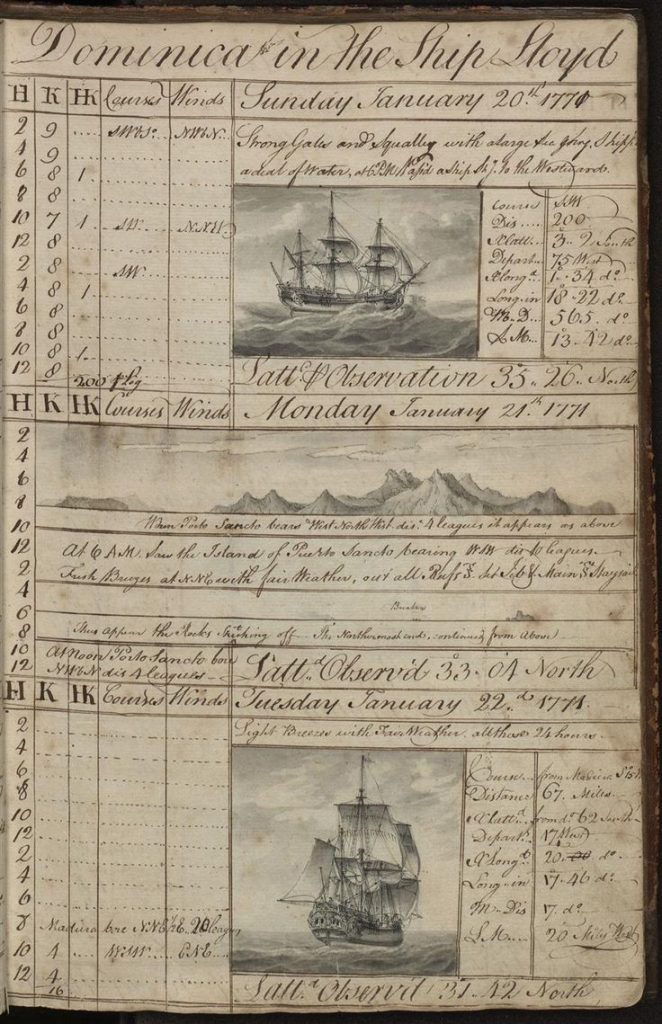 Dominica in the Ship Lloyd
H K HK Courses Winds Sunday January 20th 1771
2 9 .... SWbS. NWbN. Strong Gales and Squally with a large Sea going, Shipp
4 9
a deal of Water, at 6 PM a Ship to the Westward.
6 8 1
8 8
10 7 1 SW NNW
12 8
2 8 SW
4 8 1
6 8
8 8
10 8 1
12 8
200
Course SW
Dis .... 200
Latt 3 .. 9 South
Depart 75 West
Long 1 .. 34 do
Long in 18 .. 22 do
M .. D 565 do
L M 13 .. 42 do
Lattd Observation 35 .. 26 .. North
H K HK Courses Winds Monday January 21th 1771
2
4
6
8
10 When Porto Sancto bears West North West dis. 4 leagues it appears as above
12 At 6 AM Saw the Island of Puerto Sancto bearing dis leagues
2 Fresh Breezes at NNE with fair Weather, out all Reefs Set Jib & Main Staysail
4
6
8 Thus appear the Rocks Stretching off The Northermost end, continued from Above
10 At Noon Porto Sancto bore
12 NWbN dis 4 leagues Lattd Observ'd 33 .. 04 North
H K HK Courses Winds Tuesday January 22d 1771
2 Light Breezes with Fair Weather all these 24 hours
4
6
8
10
12
2
4
6
8 Madeira bore 20 leagues
10 4 WSW ENE
12 4
16
Course from Madeira
Distance 67 Miles
Latt from do 62 South
Depart 17 West
Long 20 do
Long in 17 .. 46 do
M .. Dis 17 do
L M 20 Miles West
Lattd Observ'd 31 .. 42 North